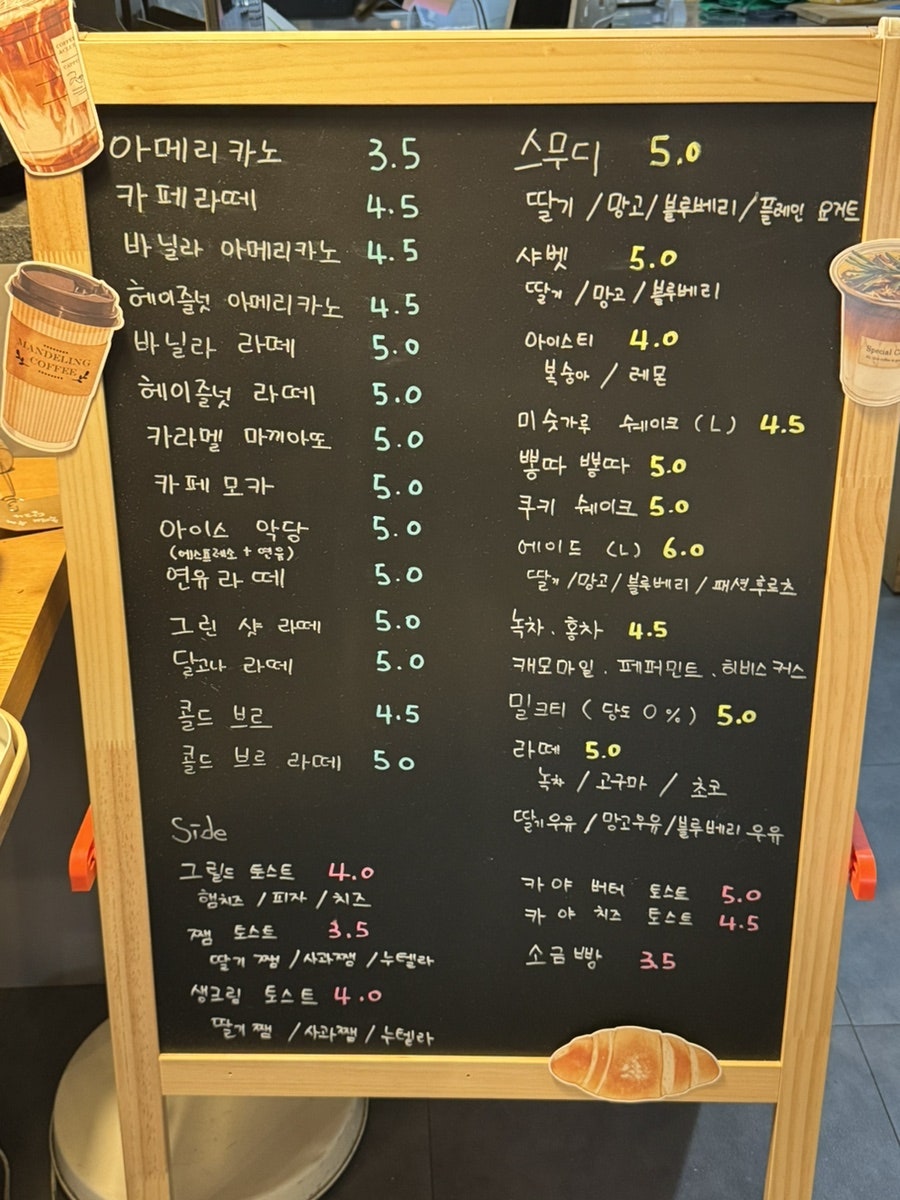 아메리카노 3.5
카페라떼 4.5
바닐라 아메리카노 4.5
헤이즐넛 아메리카노 4.5
바닐라 라떼 5.0
헤이즐넛 라떼 5.0
카라멜 마끼아또 5.0
카페모카 5.0
아이스 악당 5.0
(에스프레소 + 연유)
연유라떼 5.0
그린 샷 라떼 5.0
달고나 라떼 5.0
콜드 브르 4.5
콜드 브르 라떼 50
Side
그릴드 토스트 4.0
햄치즈 / 피자 / 치즈
쨈 토스트 3.5
딸기 쨈 / 사과쨈 / 누텔라
생크림 토스트 4.0
딸기 쨈 / 사과쨈 / 누텔라
스무디 5.0
딸기 / 망고 / 블루베리 / 플레인 요거트
샤벳 5.0
딸기 / 망고 / 블루베리
아이스티 4.0
복숭아 / 레몬
미숫가루 쉐이크 (L) 4.5
뽕따 뽕따 5.0
쿠키 쉐이크 5.0
에이드 (L) 6.0
딸기 / 망고 / 블루베리 / 패션후르츠
녹차 . 홍차 4.5
캐모마일 . 페퍼민트 . 히비스커스
밀크티 ( 당도 0 % ) 5.0
라떼 5.0
녹차 / 고구마 / 초코
딸기우유 / 망고우유 / 블루베리 우유
카야 버터 토스트 5.0
카야 치즈 토스트 4.5
소금빵 3.5
MANDELING
COFFEE